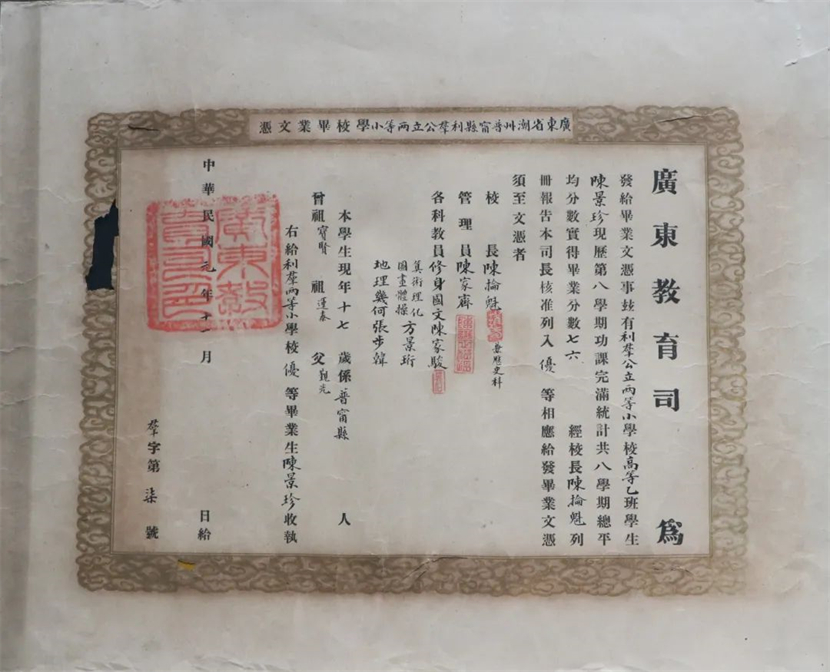 廣東省潮州普甯縣利羣公立兩等小學校畢業文憑
廣東教育司 爲
發給畢業文憑事茲有利羣公立兩等小學校高等乙班學生
陳景珍現歷第八學期功課完滿統計共八學期總平
均分數實得畢業分數七六 經校長陳掄魁列
冊報告本司長核准列入優等相應給發畢業文憑
須至文憑者
校長陳掄魁 兼歷史科
管理員陳家齊
各科教員修身國文陳家駿
算術理化
圖畫體操方景珩
地理幾何張步韓
本學生現年十七歲係普甯縣人
曾祖寶賢 祖蓬泰 父觀光
右給利羣兩等小學校優等畢業生陳景珍收執
中華民國元年十 月 日給
羣字第柒號